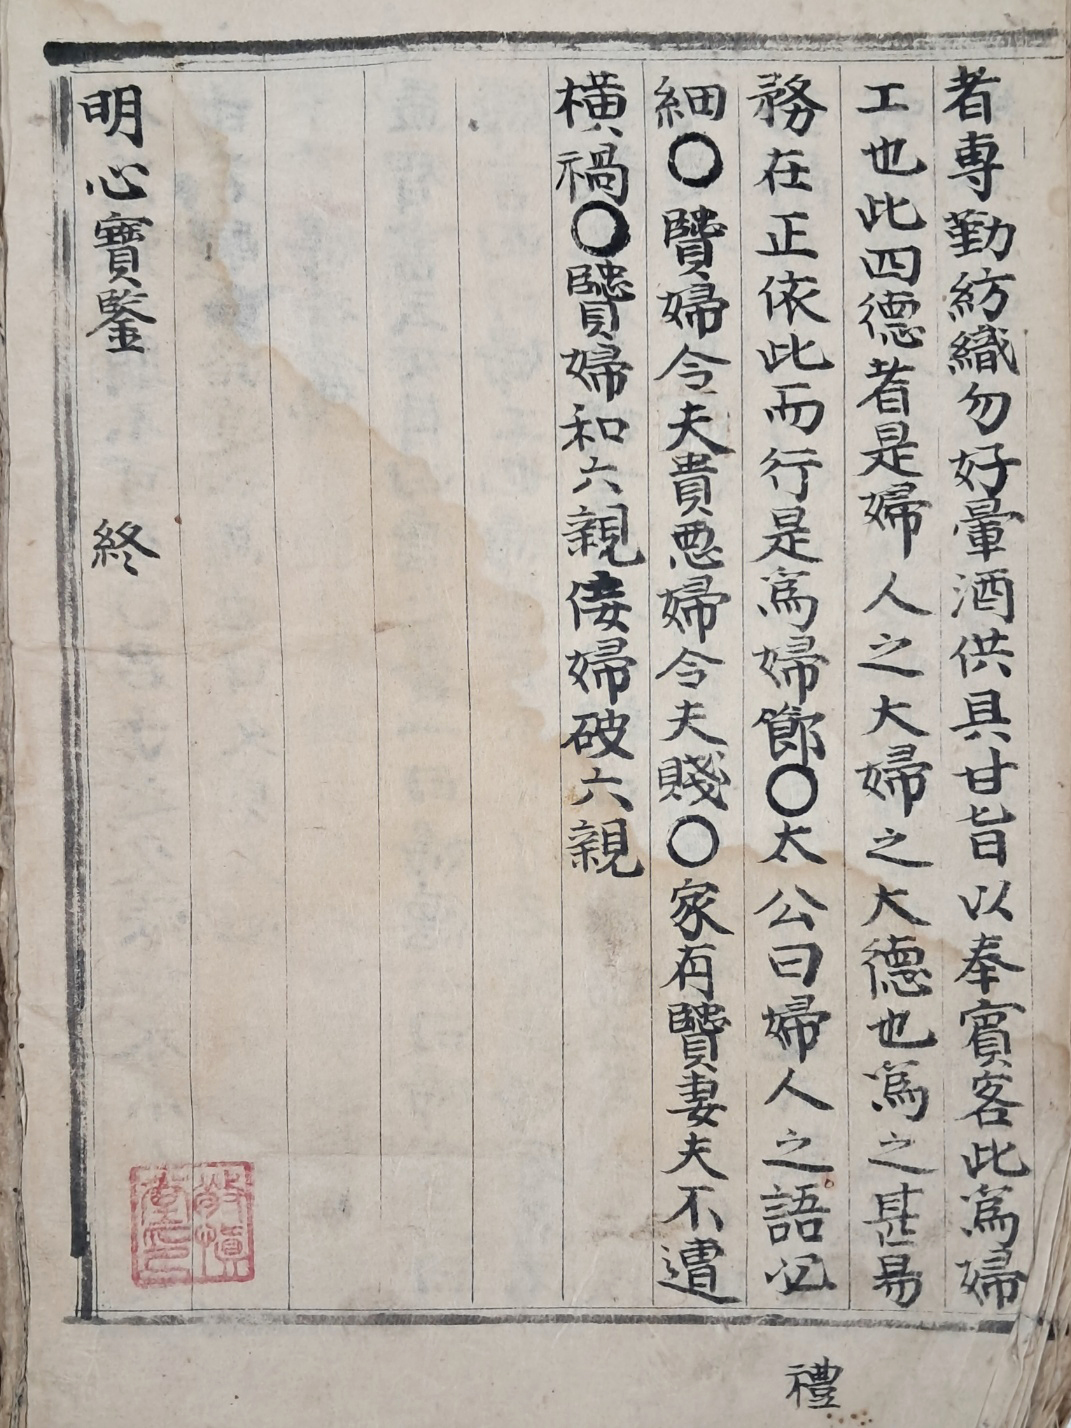 者專勤紡織勿好暈酒供具甘旨以奉賓客此爲婦
工也此四德者是婦人之大婦之大德也爲之甚易
務在正依此而行是爲婦節〇太公曰婦人之語必
細〇賢婦令夫貴悪婦令夫賤〇家有賢妻夫不遭
橫禍〇賢婦和六親佞婦破六親
明心寶鑒 終
禮